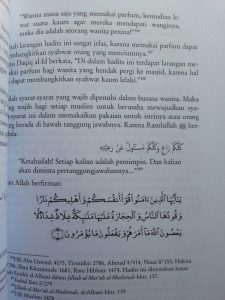 "Wanita mana saja yang memakai parfum, kemudian le-
wat suatu kaum agar mereka mendapati wanginya,
maka dia adalah seorang wanita pezina!"
larangan hadits ini sangat jelas, karena memakai parfum dapat
membangkitkan syahwat orang yang menciumnya.
Daqiq al-Id berkata, "Di dalam hadits ini terdapat larangan me-
makai parfum bagi wanita yang hendak pergi ke masjid, karena hal
dapat membangkitkan syahwat kaum lelaki."
lah syarat-syarat yang wajib dipenuhi dalam busana wanita. Maka
wajib bagi setiap muslim untuk berusaha mewujudkan syarat-
syarat ini dalam mengenakan pakaian untuk istrinya atau orang
yang berada di bawah tanggung jawabnya. Karena Rasulullah ﷺ ber-
كُلُّكُمْ رَاعٍ وَكُلُّكُمْ مَسْئُولٌ عَنْ رَعِيَّتِهِ
"Ketahuilah! Setiap kalian adalah pemimpin. Dan kalian
akan diminta pertanggungjawabannya..."
Allah berfirman:
يَٰٓأَيُّهَا ٱلَّذِينَ ءَامَنُوا۟ قُوٓا۟ أَنفُسَكُمْ وَأَهْلِيكُمْ نَارًا
وَقُودُهَا ٱلنَّاسُ وَٱلْحِجَارَةُ عَلَيْهَا مَلَٰٓئِكَةٌ غِلَاظٌ شِدَادٌ لَّا
يَعْصُونَ ٱللَّهَ مَآ أَمَرَهُمْ وَيَفْعَلُونَ مَا يُؤْمَرُونَ
HR. Abu Dawud: 4173, Tirmidzi: 2786, Ahmad 4/414, Nasai 5/153, Hakim
Ibnu Khuzaimah: 1681, Ibnu Hibban: 1474. Hadits ini dinyatakan hasan
Syaikh al-Albani dalam Jilbab al-Mar'ah al-Muslimah, hlm. 137
Jilbab al-Mar'ah al-Muslimah, al-Albani hlm. 139